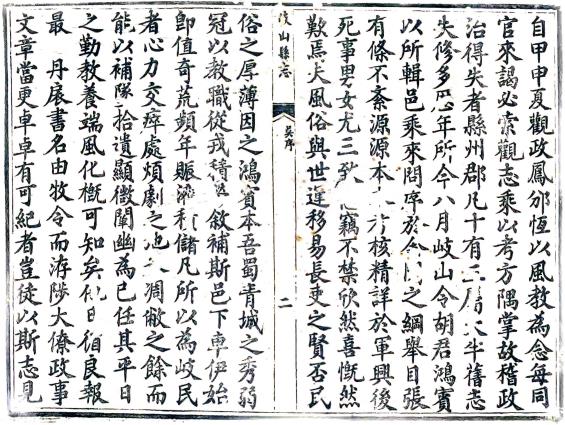 自甲申夏觀政鳳邠恆以風教為念每同
官來謁必索觀志乘以考方隅掌故稽政
治得失者縣州郡凡十有三屬大半舊志
失修多歷年所今八月岐山令胡君鴻賓
以所輯邑乘來問序於余閱之綱舉目張
有條不紊源源本本考核精詳於軍興後
死事男女尤三致竊不禁欣然喜慨然
歎焉夫風俗與世運移易長吏之賢否民
岐山縣志
吳序
二
俗之厚薄因之鴻賓本吾蜀青城之秀弱
冠以教職從戎積敘補斯邑下車伊始
卽值奇荒頻年賑積儲凡所以為岐民
者心力交瘁處煩劇之地凋敝之餘而
能以補隊拾遺顯微闡幽為己任其平日
之勤教養端風化概可知矣他日循良報
最丹扆書名由牧令而洊陟大僚政事
文章當更卓卓有可紀者豈徒以斯志見